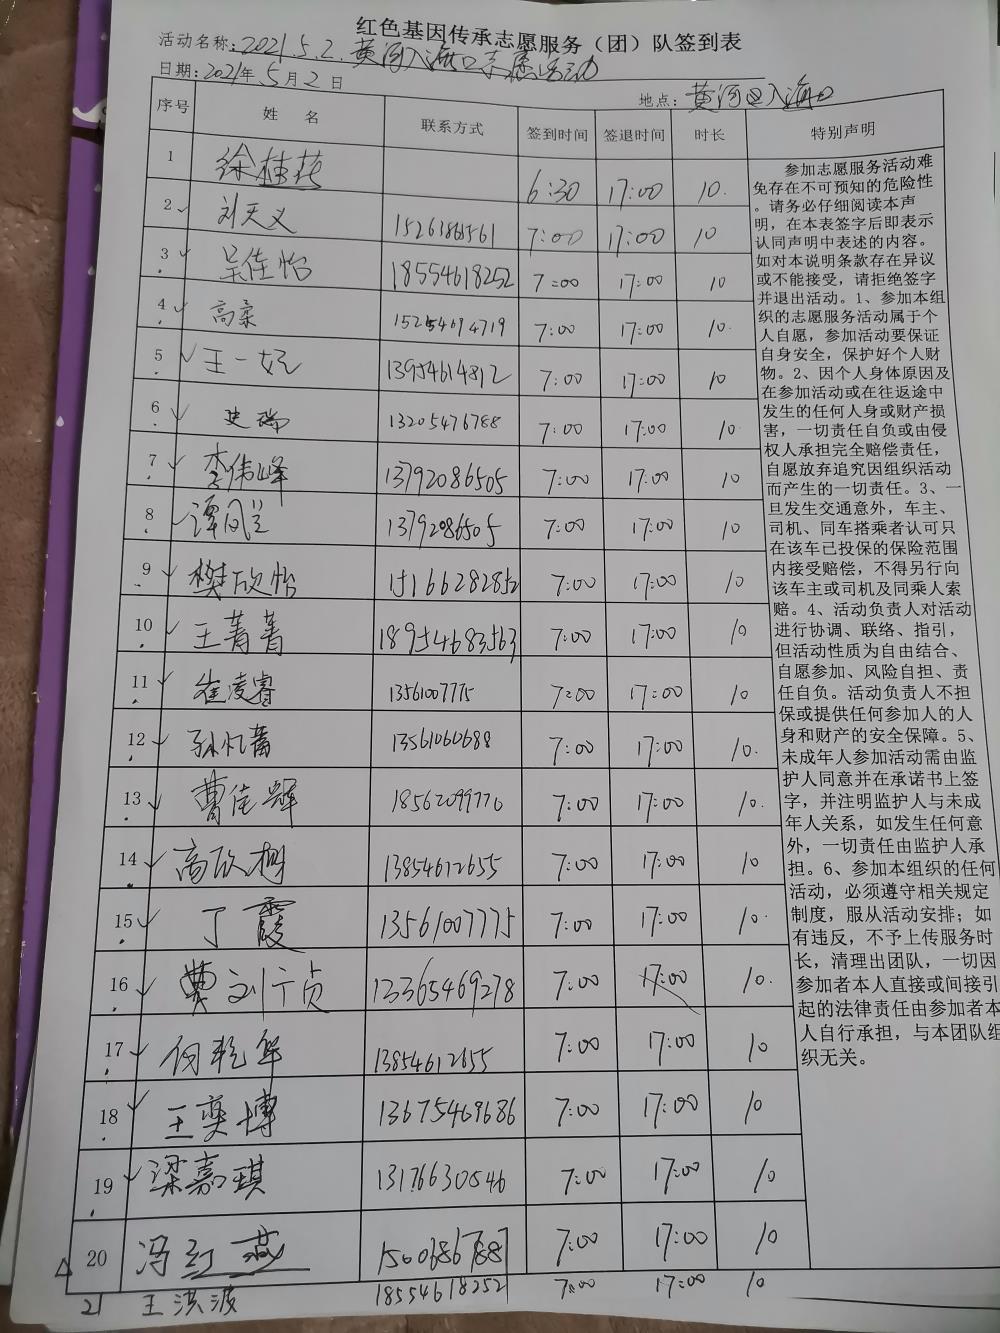 红色基因传承志愿服务（团）队签到表
活动名称：2021.5.2.黄河入海口志愿活动
日期：2021年5月2日
地点：黄河入海口
序号 姓 名 联系方式 签到时间 签退时间 时长 特别声明
1 徐桂花 6:30 17:00 10.
2 刘天义 15263865561 7:00 17:00 10
3 吴佳怡 18554618252 7:00 17:00 10
4 高柔 15254694719 7:00 17:00 10.
5 王一妃 13954614812 7:00 17:00 10
6 史瑞 13205476788 7:00 17:00 10.
7 李伟峰 13792086505 7:00 17:00 10.
8 谭凤兰 13792086505 7:00 17:00 10
9 樊欣怡 15166282852 7:00 17:00 10
10 王菁菁 18954683563 7:00 17:00 10
11 崔凌睿 13561007775 7:00 17:00 10
12 孙忆菡 13561060688 7:00 17:00 10.
13 曹佳辉 18562099770 7:00 17:00 10.
14 高欣桐 13854612655 7:00 17:00 10
15 丁霞 13561007775 7:00 17:00 10.
16 费刘宁贞 13365469278 7:00 17:00 10.
17 何乾华 13854612655 7:00 17:00 10
18 王奕博 13675469686 7:00 17:00 10
19 梁嘉琪 13176630546 7:00 17:00 10
20 冯红燕 15006867887 7:00 17:00 10
21 王洪波 18554618252 7:00 17:00 10
参加志愿服务活动难
免存在不可预知的危险性
。请务必仔细阅读本声
明，在本表签字后即表示
认同声明中表述的内容。
如对本说明条款存在异议
或不能接受，请拒绝签字
并退出活动。1、参加本组
织的志愿服务活动属于个
人自愿，参加活动要保证
自身安全，保护好个人财
物。2、因个人身体原因及
在参加活动或在往返途中
发生的任何人身或财产损
害，一切责任自负或由侵
权人承担完全赔偿责任，
自愿放弃追究因组织活动
而产生的一切责任。3、一
旦发生交通意外，车主、
司机、同车搭乘者认可只
在该车已投保的保险范围
内接受赔偿，不得另行向
该车主或司机及同乘人索
赔。4、活动负责人对活动
进行协调、联络、指引，
但活动性质为自由结合、
自愿参加、风险自担、责
任自负。活动负责人不担
保或提供任何参加人的人
身和财产的安全保障。5、
未成年人参加活动需由监
护人同意并在承诺书上签
字，并注明监护人与未成
年人关系，如发生任何意
外，一切责任由监护人承
担。6、参加本组织的任何
活动，必须遵守相关规定
制度，服从活动安排；如
有违反，不予上传服务时
长，清理出团队，一切因
参加者本人直接或间接引
起的法律责任由参加者本
人自行承担，与本团队组
织无关。